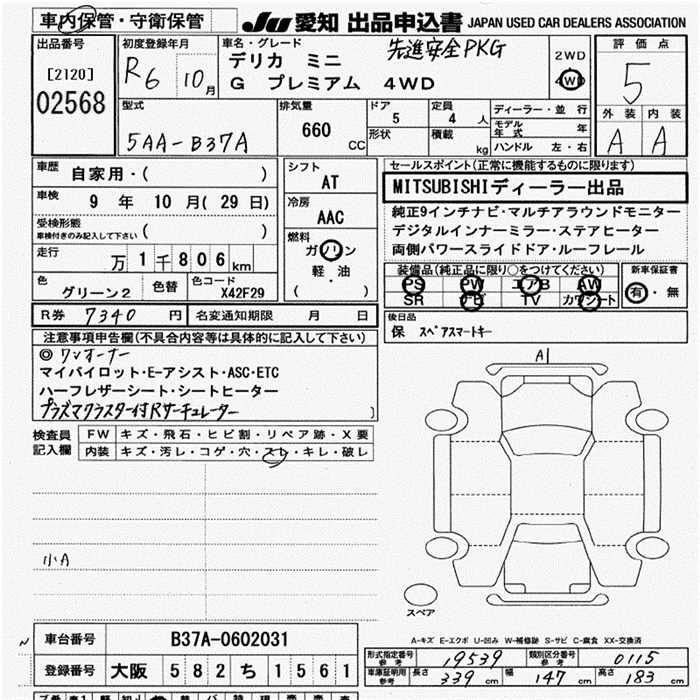 車内保管・守衛保管 JU 愛知 出品申込書 JAPAN USED CAR DEALERS ASSOCIATION
出品番号 初度登録年月 車名・グレード 先進安全PKG 評価点
[2120] R6 10月 デリカ ミニ 2WD 5
02568 G プレミアム 4WD 4WD
型式 排気量 ドア 定員 ディーラー・並行 外装 内装
5AA-B37A 660 CC 5 4人 モデル年式 年 A A
形状 積載 kg ハンドル 左・右
車歴 自家用・( ) シフト AT セールスポイント(正常に機能するものに限ります)
車検 9年 10月(29日) 冷房 AAC MITSUBISHIディーラー出品
受検形態 純正9インチナビ・マルチアラウンドモニター
車検付きのみ記入して下さい ( ) 燃料 デジタルインナーミラー・ステアヒーター
走行 万1千806km ガソリン 両側パワースライドドア・ルーフレール
軽・油 装備品(純正品に限り○をつけてください) 新車保証書
色 グリーン2 色替 色コード X42F29 ( ) PS PW エアB AW 有・無
SR ナビ TV カワシート
R券 7340円 名変通知期限 月 日 後日品
保 スペアスマートキー
注意事項申告欄(不具合内容等は具体的に記入して下さい)
◎ワンオーナー A1
マイパイロット・E-アシスト・ASC・ETC
ハーフレザーシート・シートヒーター
プラズマクラスター付Rサーキュレーター
検査員 FW キズ・飛石・ヒビ割・リペア跡・X要
記入欄 内装 キズ・汚レ・コゲ・穴・スレ・キレ・破レ
小A
スペア
A-キズ E-エクボ U-凹み W-補修跡 S-サビ C-腐食 XX-交換済
車台番号 B37A-0602031
型式指定番号 参考 19539 類別区分番号 参考 0115
登録番号 大阪 582 ち 1561
車庫証明用 参考 長さ 339cm 幅 147cm 高さ 183cm